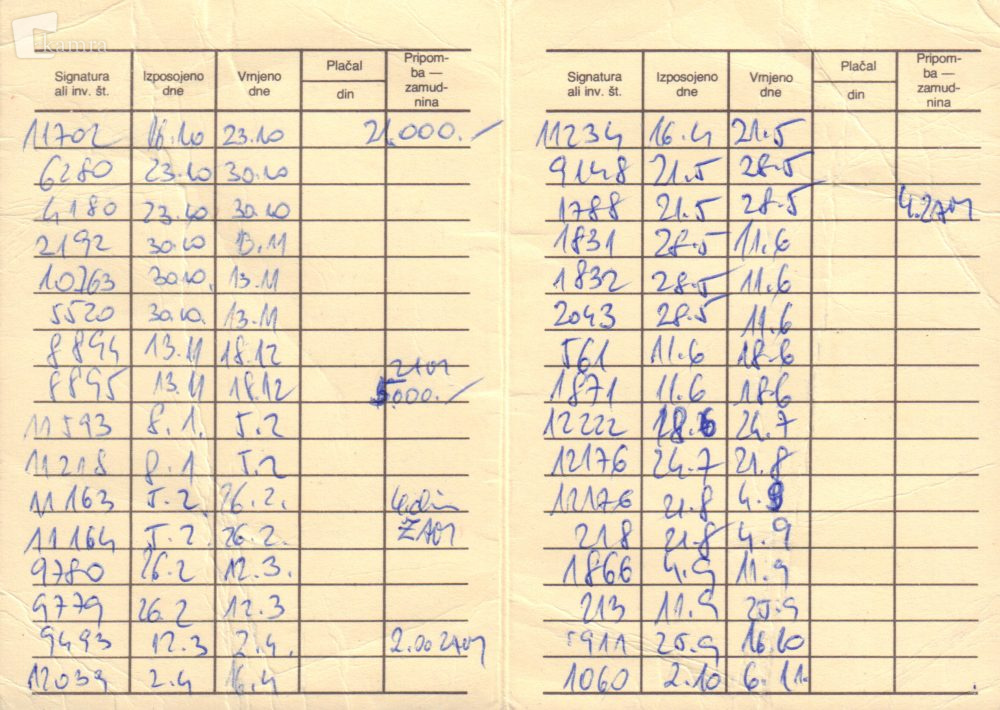 kamra
Signatura ali inv. št. Izposojeno dne Vrnjeno dne Plačal din Pripomba — zamudnina
11702 16.10 23.10 21.000.-
6280 23.10 30.10
4180 23.10 30.10
2192 30.10 13.11
10763 30.10. 13.11
5520 30.10. 13.11
8894 13.11 18.12
8895 13.11 18.12 5.000.-
11593 8.1. 5.2
11218 8.1 5.2
11163 5.2 26.2. 4.din
11164 5.2 26.2. ZAM
9780 26.2 12.3.
9779 26.2 12.3
9493 12.3 2.4. 2.00 ZAM
12039 2.4 16.4
Signatura ali inv. št. Izposojeno dne Vrnjeno dne Plačal din Pripomba — zamudnina
11234 16.4 21.5
9148 21.5 28.5
1788 21.5 28.5 4.ZAM
1831 28.5 11.6
1832 28.5 11.6
2043 28.5 11.6
561 11.6 18.6
1871 11.6 18.6
12222 18.6 24.7
12176 24.7 21.8
12176 21.8 4.9
218 21.8 4.9
1866 4.9 11.9
213 11.9 25.9
5911 25.9 16.10
1060 2.10 6.11.